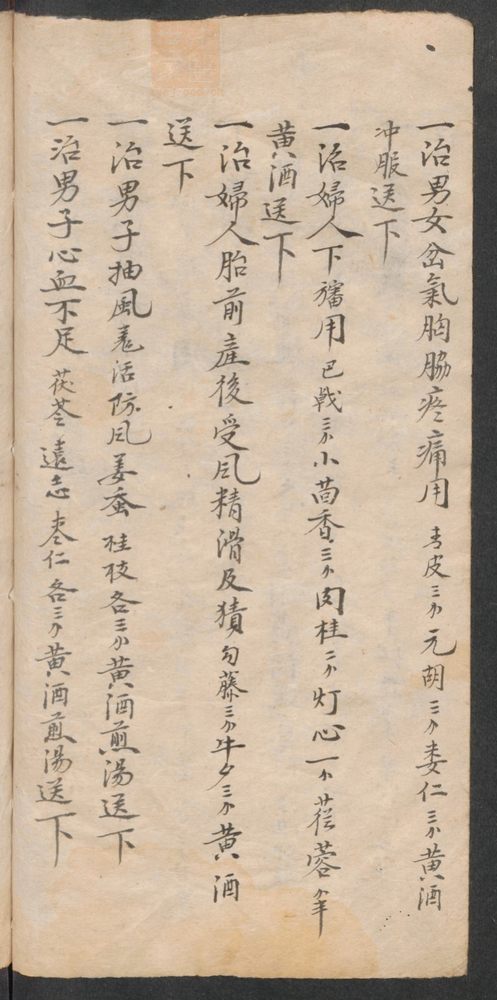 一治男女岔氣胸脇疼痛用青皮三分元胡三分娄仁三分黄酒
冲服送下
一治婦人下㿉用巴戟三分小茴香三分肉桂二分灯心一分蓯蓉分半
黄酒送下
一治婦人胎前産後受風精滑及獖勾藤三分牛夕三分黄酒
送下
一治男子抽風羌活防风姜蚕桂枝各三分黄酒煎湯送下
一治男子心血不足茯苓遠志枣仁各三分黄酒煎湯送下